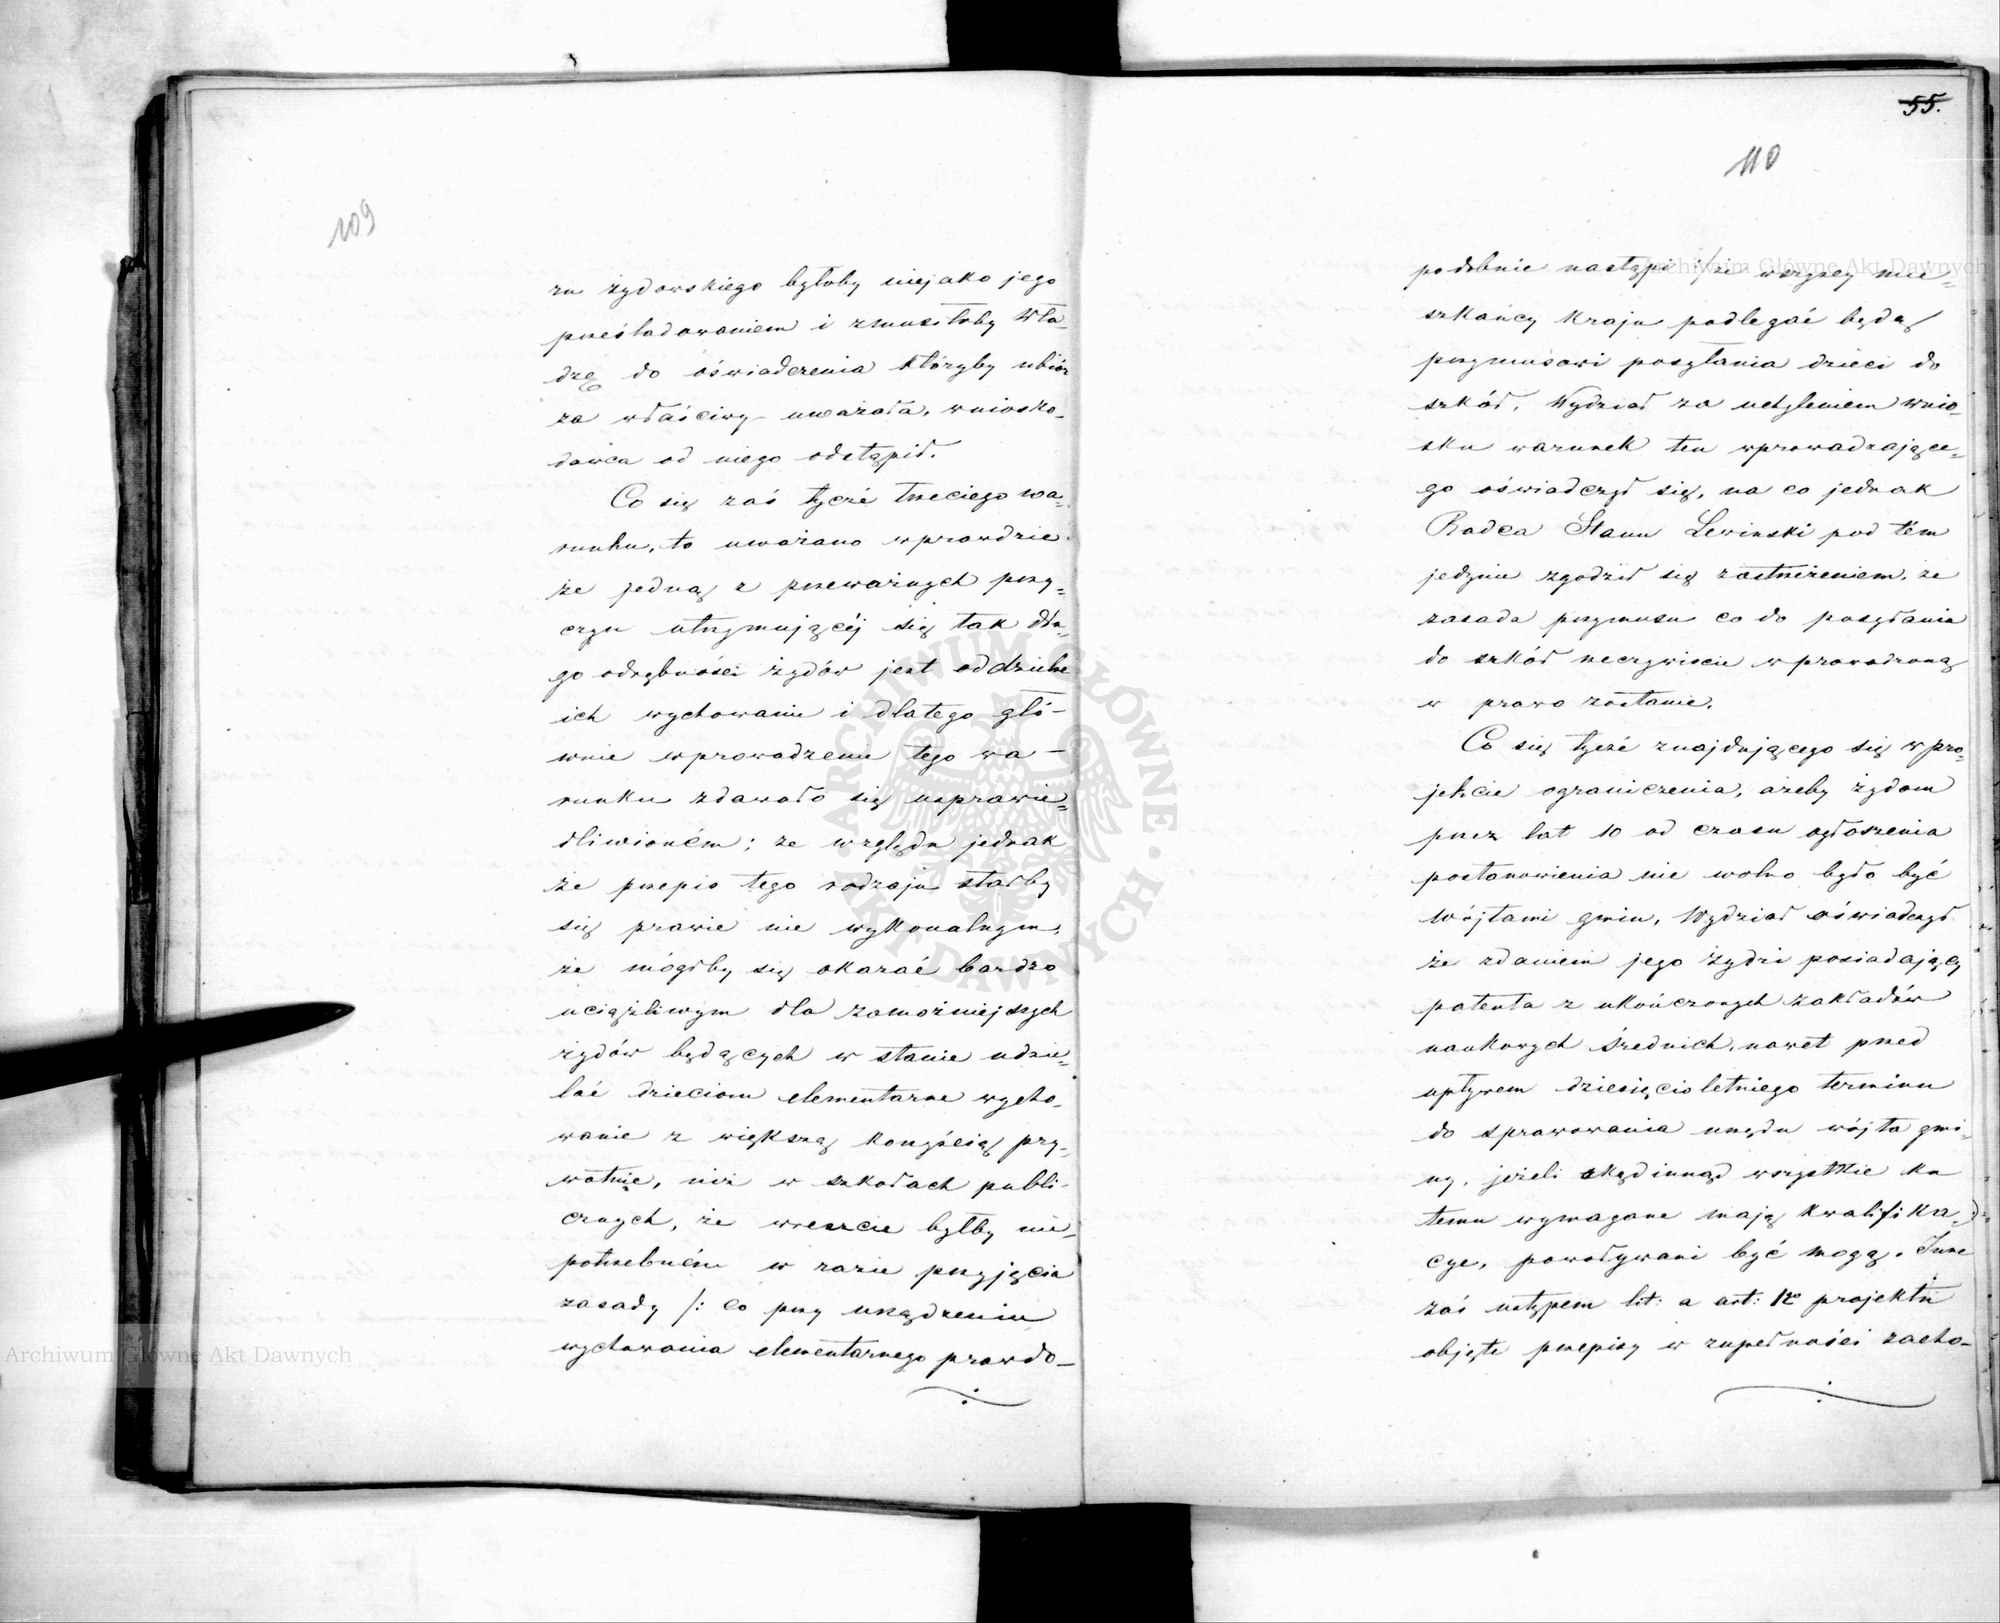 109
ru żydowskiego byłoby niejako jego
prześladowaniem i zmusiłoby Wła-
dzę do oświadczenia któryby ubiór
za właściwy uważała, wniosko-
dawca od niego odstąpił.
Co się zaś tycze trzeciego wa-
runku, to uważano wprawdzie
że jedną z przeważnych przy-
czyn utrzymującéj się tak dłu-
go odrębności żydów jest oddzielne
ich wychowanie i dlatego głó-
wnie wprowadzenie tego wa-
runku zdawało się usprawie-
dliwioném; ze względu jednak
że przepis tego rodzaju stałby
się prawie nie wykonalnym,
że mógłby się okazać bardzo
uciążliwym dla zamożniejszych
żydów będących w stanie udzie-
lać dzieciom elementarne wycho-
wanie z większą korzyścią pry-
watnie, niż w szkołach publi-
cznych, że wreszcie byłby nie-
potrzebném w razie przyjęcia
zasady /: co przy urządzeniu
wychowania elementarnego prawdo-
55.
110
podobnie nastąpi :/ że wszyscy mie-
szkańcy kraju podlegać będą
przymusowi posyłania dzieci do
szkół. Wydział za uchyleniem wnio-
sku warunek ten wprowadzające-
go oświadczył się, na co jednak
Radca Stanu Lewinski pod tém
jedynie zgodził się zastrzeżeniem, że
zasada przymusu co do posyłania
do szkół rzeczywiscie wprowadzoną
w prawo zostanie.
Co się tycze znajdującego się w pro-
jekcie ograniczenia, ażeby żydom
przez lat 10 od czasu ogłoszenia
postanowienia nie wolno było być
Wójtami gmin, Wydział oświadczył
że zdaniem jego żydzi posiadający
patenta z ukończonych zakładów
naukowych średnich, nawet przed
upływem dziesięcioletniego terminu
do sprawowania urzędu wójta gmi-
ny, jeżeli skądinnąd wszystkie ku
temu wymagane mają kwalifika-
cye, powoływani być mogą. Inne
zaś ustępem lit: a art: 12o projektu
objęte przepisy w zupełności zacho-
Archiwum Główne Akt Dawnych
Archiwum Główne Akt Dawnych
ARCHIWUM GŁÓWNE AKT DAWNYCH